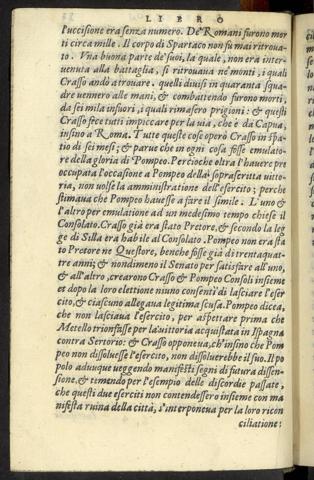 LIBRO
l'uccisione era senza numero. De' Romani furono mor
ti circa mille. Il corpo di Spartaco non fu mai ritroua
to. Vna buona parte de' suoi, la quale, non era inter-
uenuta alla battaglia, si ritrouaua ne' monti, i quali
Crasso andò atrouare. quelli diuisi in quaranta squa
dre uennero alle mani, & combattendo furono morti,
da sei mila infuori, i quali rimasero prigioni: & questi
Crasso fece tutti impiccare per la uia, che è da Capua,
insino a Roma. Tutte queste cose operò Crasso in spa
tio di sei mesi; & parue che in ogni cosa fosse emulato-
re della gloria di Pompeo. Percioche oltra l'hauere pre
occupata l'occasione a Pompeo della soprascritta uitto-
ria, non uolse la amministratione dell'esercito; perche
stimaua che Pompeo hauesse a fare il simile. L'uno &
l'altro per emulatione ad un medesimo tempo chiese il
Consolato. Crasso già era stato Pretore, & secondo la leg
ge di Silla era habile al Consolato. Pompeo non era sta
to Pretore ne Questore, benche fosse già di trentaquat-
tre anni; & nondimeno il Senato per satisfare all'uno,
& all'altro, crearono Crasso & Pompeo Consoli insieme
et dopo la loro elettione niuno consentì di lasciare l'eser
cito, & ciascuno allegaua legitima scusa. Pompeo dicea,
che non lasciaua l'esercito, per aspettare prima che
Metello trionfasse per la uittoria acquistata in Ispagna
contra Sertorio: & Crasso opponeua, ch'insino che Pom
peo non dissoluesse l'esercito, non dissoluerebbe il suo. Il po
polo adunque ueggendo manifesti segni di futura dissen-
sione, & temendo per l'esempio delle discordie passate,
che questi due eserciti non contendessero insieme con ma
nifesta ruina della città, s'interponeua per la loro ricon
ciliatione: